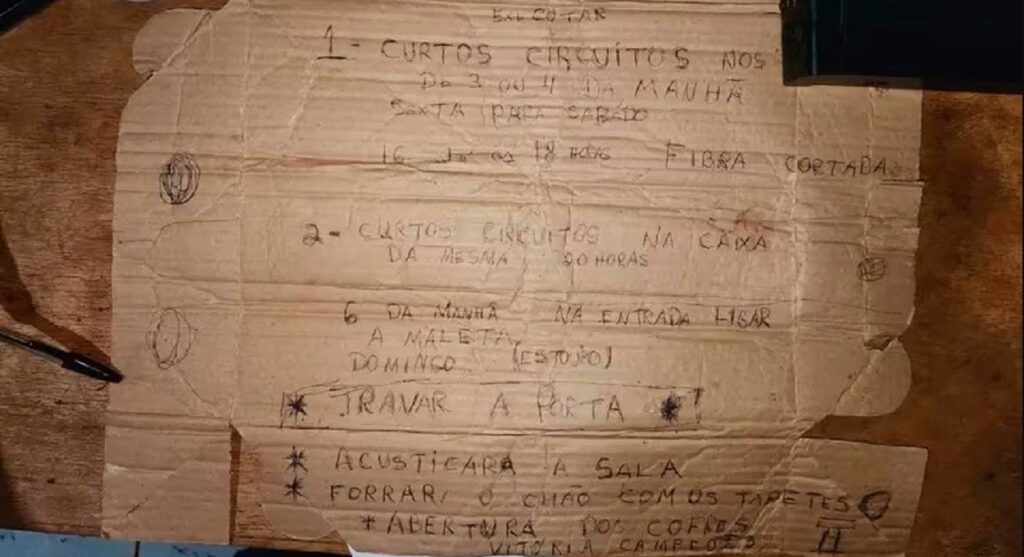 EXECUTAR
1- CURTOS CIRCUITOS NOS
DO 3 OU 4 DA MANHÃ
SEXTA PARA SABÁDO
16 18 FIBRA CORTADA
2- CURTOS CIRCUITOS NA CAIXA
DA MESMA 20 HORAS
6 DA MANHÃ NA ENTRADA LIGAR
A MALETA,
DOMINGO. (ESTOURO)
* TRAVAR A PORTA *
* ACUSTICARA A SALA
* FORRAR O CHÃO COM OS TAPETES
* ABERTURA DOS COFRES
VITÓRIA CAMPEÕES